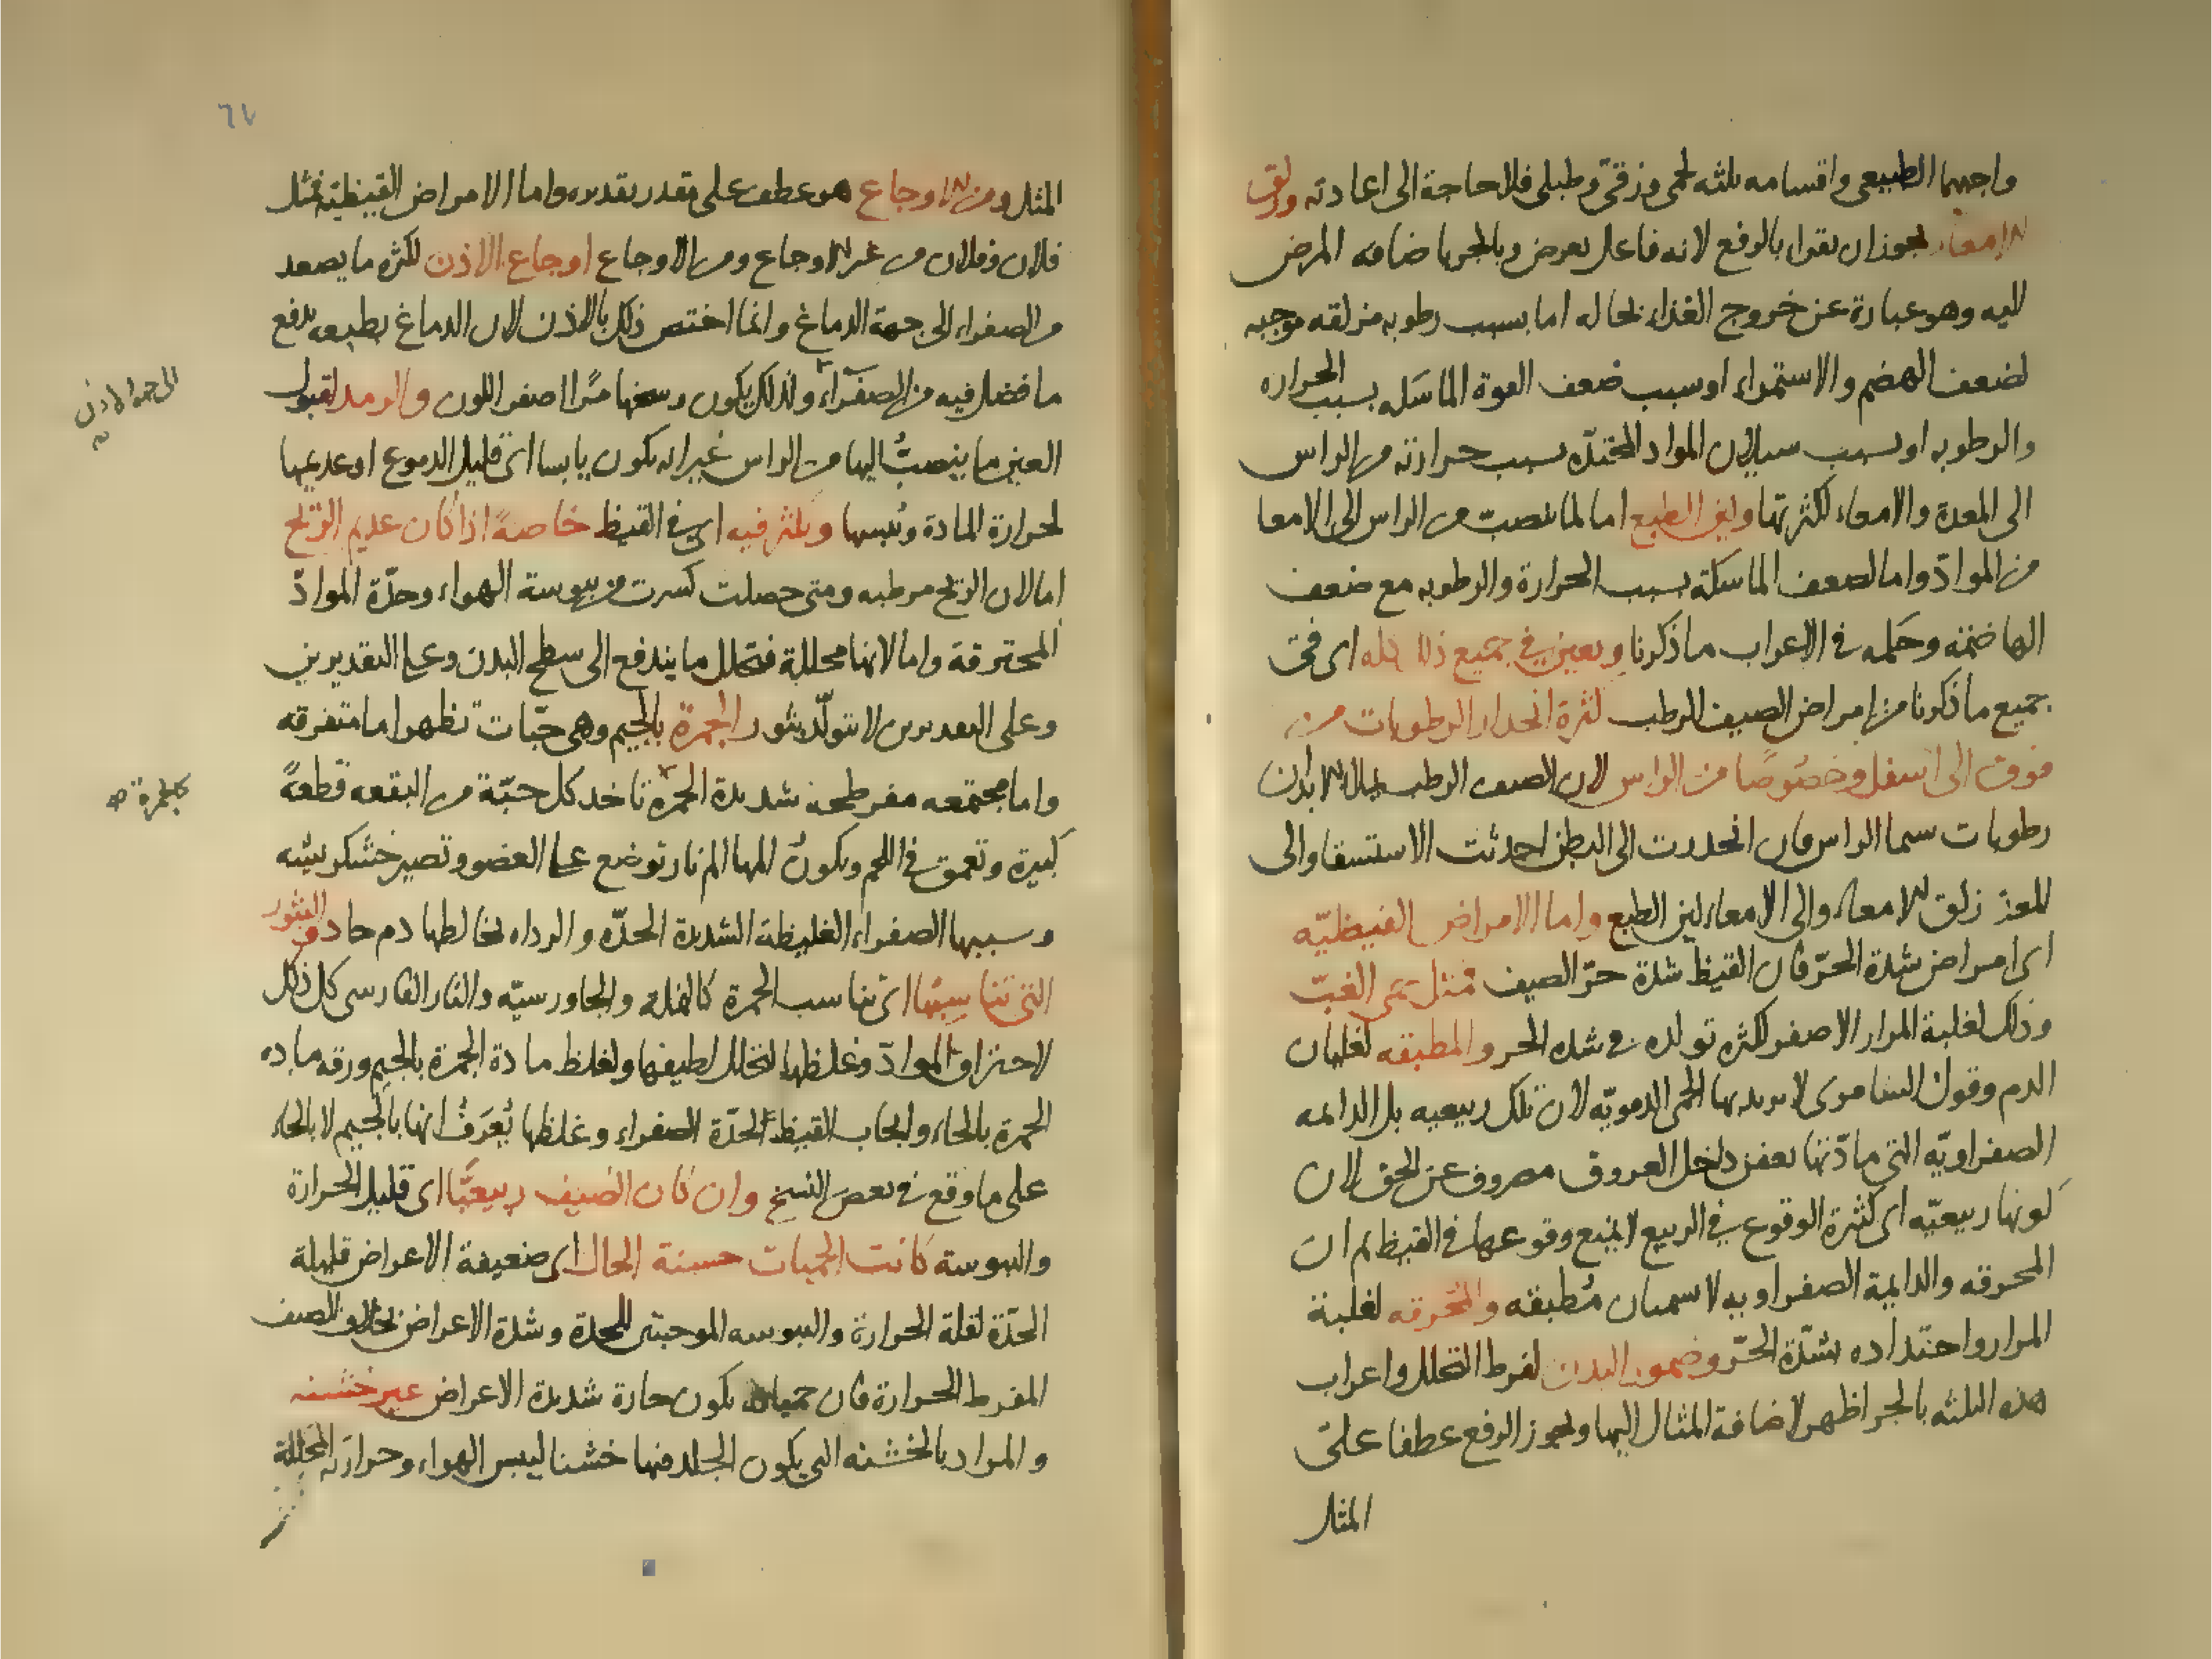 واجبها الطبيعي واقسامه ثلثه لحمى وزقى وطبلى فلا حاجة الى اعادته وزلق
الامعاء يجوز ان يقرا بالرفع لانه فاعل يعرض وبالجر باضافه المرض
اليه وهو عبارة عن خروج الغذاء بحاله اما بسبب رطوبه مزلقه موجبه
لضعف الهضم والاستمراء او سبب ضعف القوة الماسكه بسبب الحراره
والرطوبه او بسبب سيلان المواد المحتدّه بسبب حرارته من الراس
الى المعدة والامعاء لكثرتها ولين الطبع اما لما ينصبّ من الراس الى الامعا
من الموادّ واما لضعف الماسكة بسبب الحرارة والرطوبه مع ضعف
الهاضمة وحكمه في الاعراب ما ذكرنا ويعين في جميع ذلك كله اى فى
جميع ما ذكرنا من امراض الصيف الرطب كثرة انحدار الرطوبات من
فوق الى اسفل وخصوصًا من الراس لان الصيف الرطب يملا الابدان
رطوبات سيما الراس فان انحدرت الى البطن احدثت الاستسقا والى
المعدة زلق الامعاء والى الامعاء لين الطبع واما الامراض القيظيّه
اى امراض شدة الحرّ فان القيظ شدة حرّ الصيف فمثل حمى الغبّ
وذلك لغلبة المرار الاصفر لكثرة تولده فى شده الحر والمطبقه لغليان
الدم وقول السامرى لا يريد بها الحمى الدمويّه لان تلك ربيعيه بل الدائمه
الصفراويّه التى مادّتها تعفن داخل العروق مصروف عن الحق لان
كونها ربيعيّه اى كثرة الوقوع في الربيع لا يمنع وقوعها في القيظ ثم ان
المحرقه والدايمة الصفراويه لا تسميان مُطبقه والمحرقه لغلبة
المرار واحتداده بشدّة الحرّ وضمور البدن لفرط التحلل واعراب
هذه الثلثه بالجر اظهر لاضافة المثال اليها ويجوز الرفع عطفا على
المثل
٦٧
المثل ومن الاوجاع هو عطف على مقدر تقديره واما الامراض القيظيّه فمثل
فلان وفلان من غير الاوجاع ومن الاوجاع اوجاع الاذن لكثرة ما يصعد
من الصفراء الى جهة الدماغ وانما اختص ذلك بالاذن لان الدماغ بطبعه يدفع
ما فضل فيه من الصفرآء ولذلك يكون وسخها مرًّا اصفر اللون والرمد لقبول
العين ما ينصبّ اليها من الراس غير انه يكون يابسا اى قليل الدموع او عديمها
لحرارة المادة ويبسها ويكثر فيه اى فى القيظ خاصةً اذا كان عديم الريح
اما لان الريح مرطبه ومتى حصلت كسرت من يبوسة الهواء وحدّة الموادّ
المحترقة واما لانها محللة فتحلل ما يندفع الى سطح البدن وعلى التقديرين
وعلى التقديرين لا تتولّد بثور الجمرة بالجيم وهى حبّات تظهر اما متفرقه
واما مجتمعه مفرطحة شديدة الحمرة تاخد كل حبّة من البقعه قطعةً
كبيرة وتعمق فى اللحم ويكون المها الم نار توضع على العضو وتصير خشكريشه
وسببها الصفراء الغليظة الشديدة الحدّه والرداه يخالطها دم حاد والبثور
التى تناسبها اى تناسب الجمرة كالنمله والجاورسيّه والنار الفارسى كل ذلك
لاحتراق الموادّ وغلظها لتحلل لطيفها ولغلظ مادة الجمرة بالجيم ورقه ماده
الحمرة بالحاء وايجاب القيظ لحدّة الصفراء وغلظها يُعرَف انها بالجيم لا بالحاء
على ما وقع فى بعض النسخ وان كان الصيف ربيعيًّا اى قليل الحرارة
واليبوسة كانت الحميات حسنة الحال اى ضعيفة الاعراض قليلة
الحدّة لقلة الحرارة واليبوسه الموجبتين للحدة وشدة الاعراض بخلاف الصيف
المفرط الحرارة فان حمياته يكون حارة شديدة الاعراض غير خشنه
والمراد بالخشنه التى يكون الجلد فيها خشنا ليبس الهواء وحرارته المحللة
الى جهة الاذن
كالجمرة